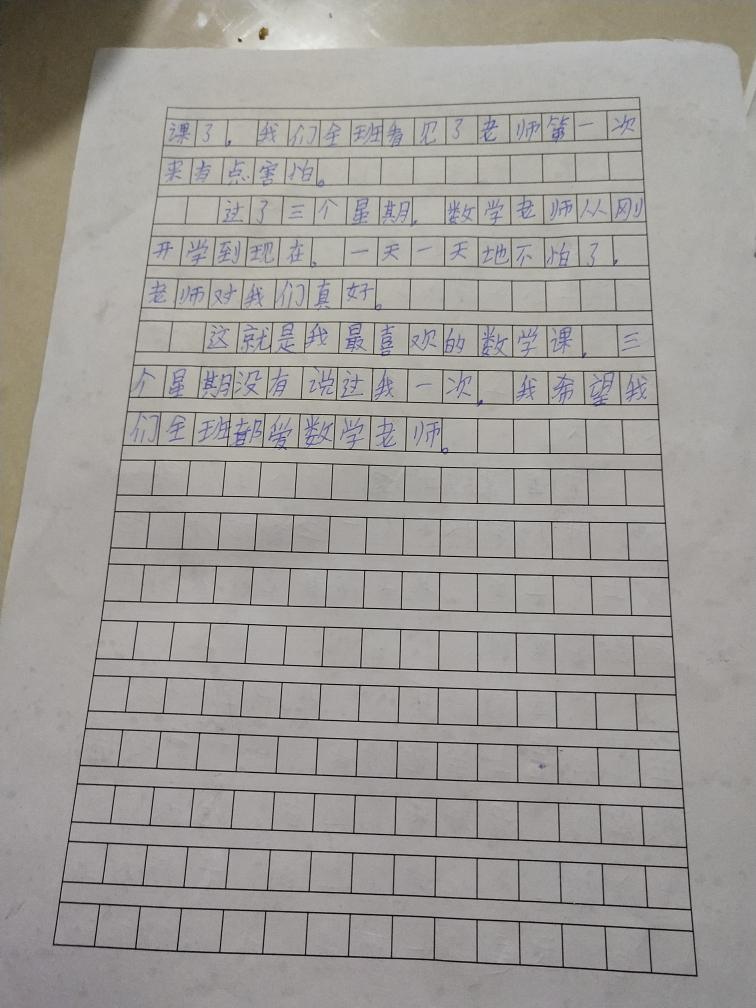 课了，我们全班看见了老师第一次
来有点害怕。
过了三个星期，数学老师从刚
开学到现在，一天一天地不怕了，
老师对我们真好。
这就是我最喜欢的数学课，三
个星期没有说过我一次，我希望我
们全班都爱数学老师。